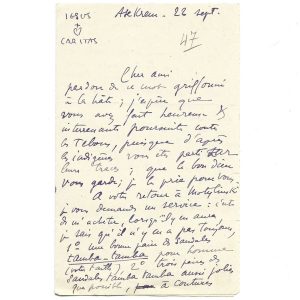 IESUS
CARITAS
Asekrem. 22 sept.
47
Cher ami
pardon de ce mot griffonné
à la hâte ; j'espère que
vous avez fait heureuse &
intéressante poursuite contre
les Tebous, puisque d'après
les indigènes vous êtes parti sur
leurs traces ; que le bon Dieu
vous garde, je le prie pour vous
A votre retour à Motylinski
je vous demande un service : c'est
de m'acheter, lorsqu'il y en aura
je sais qu'il n'y en a pas toujours,
1º une bonne paire de sandales
tamba-tamba pour homme
2º trois paires de
sandales tamba tamba aussi jolies
que possible, à coutures